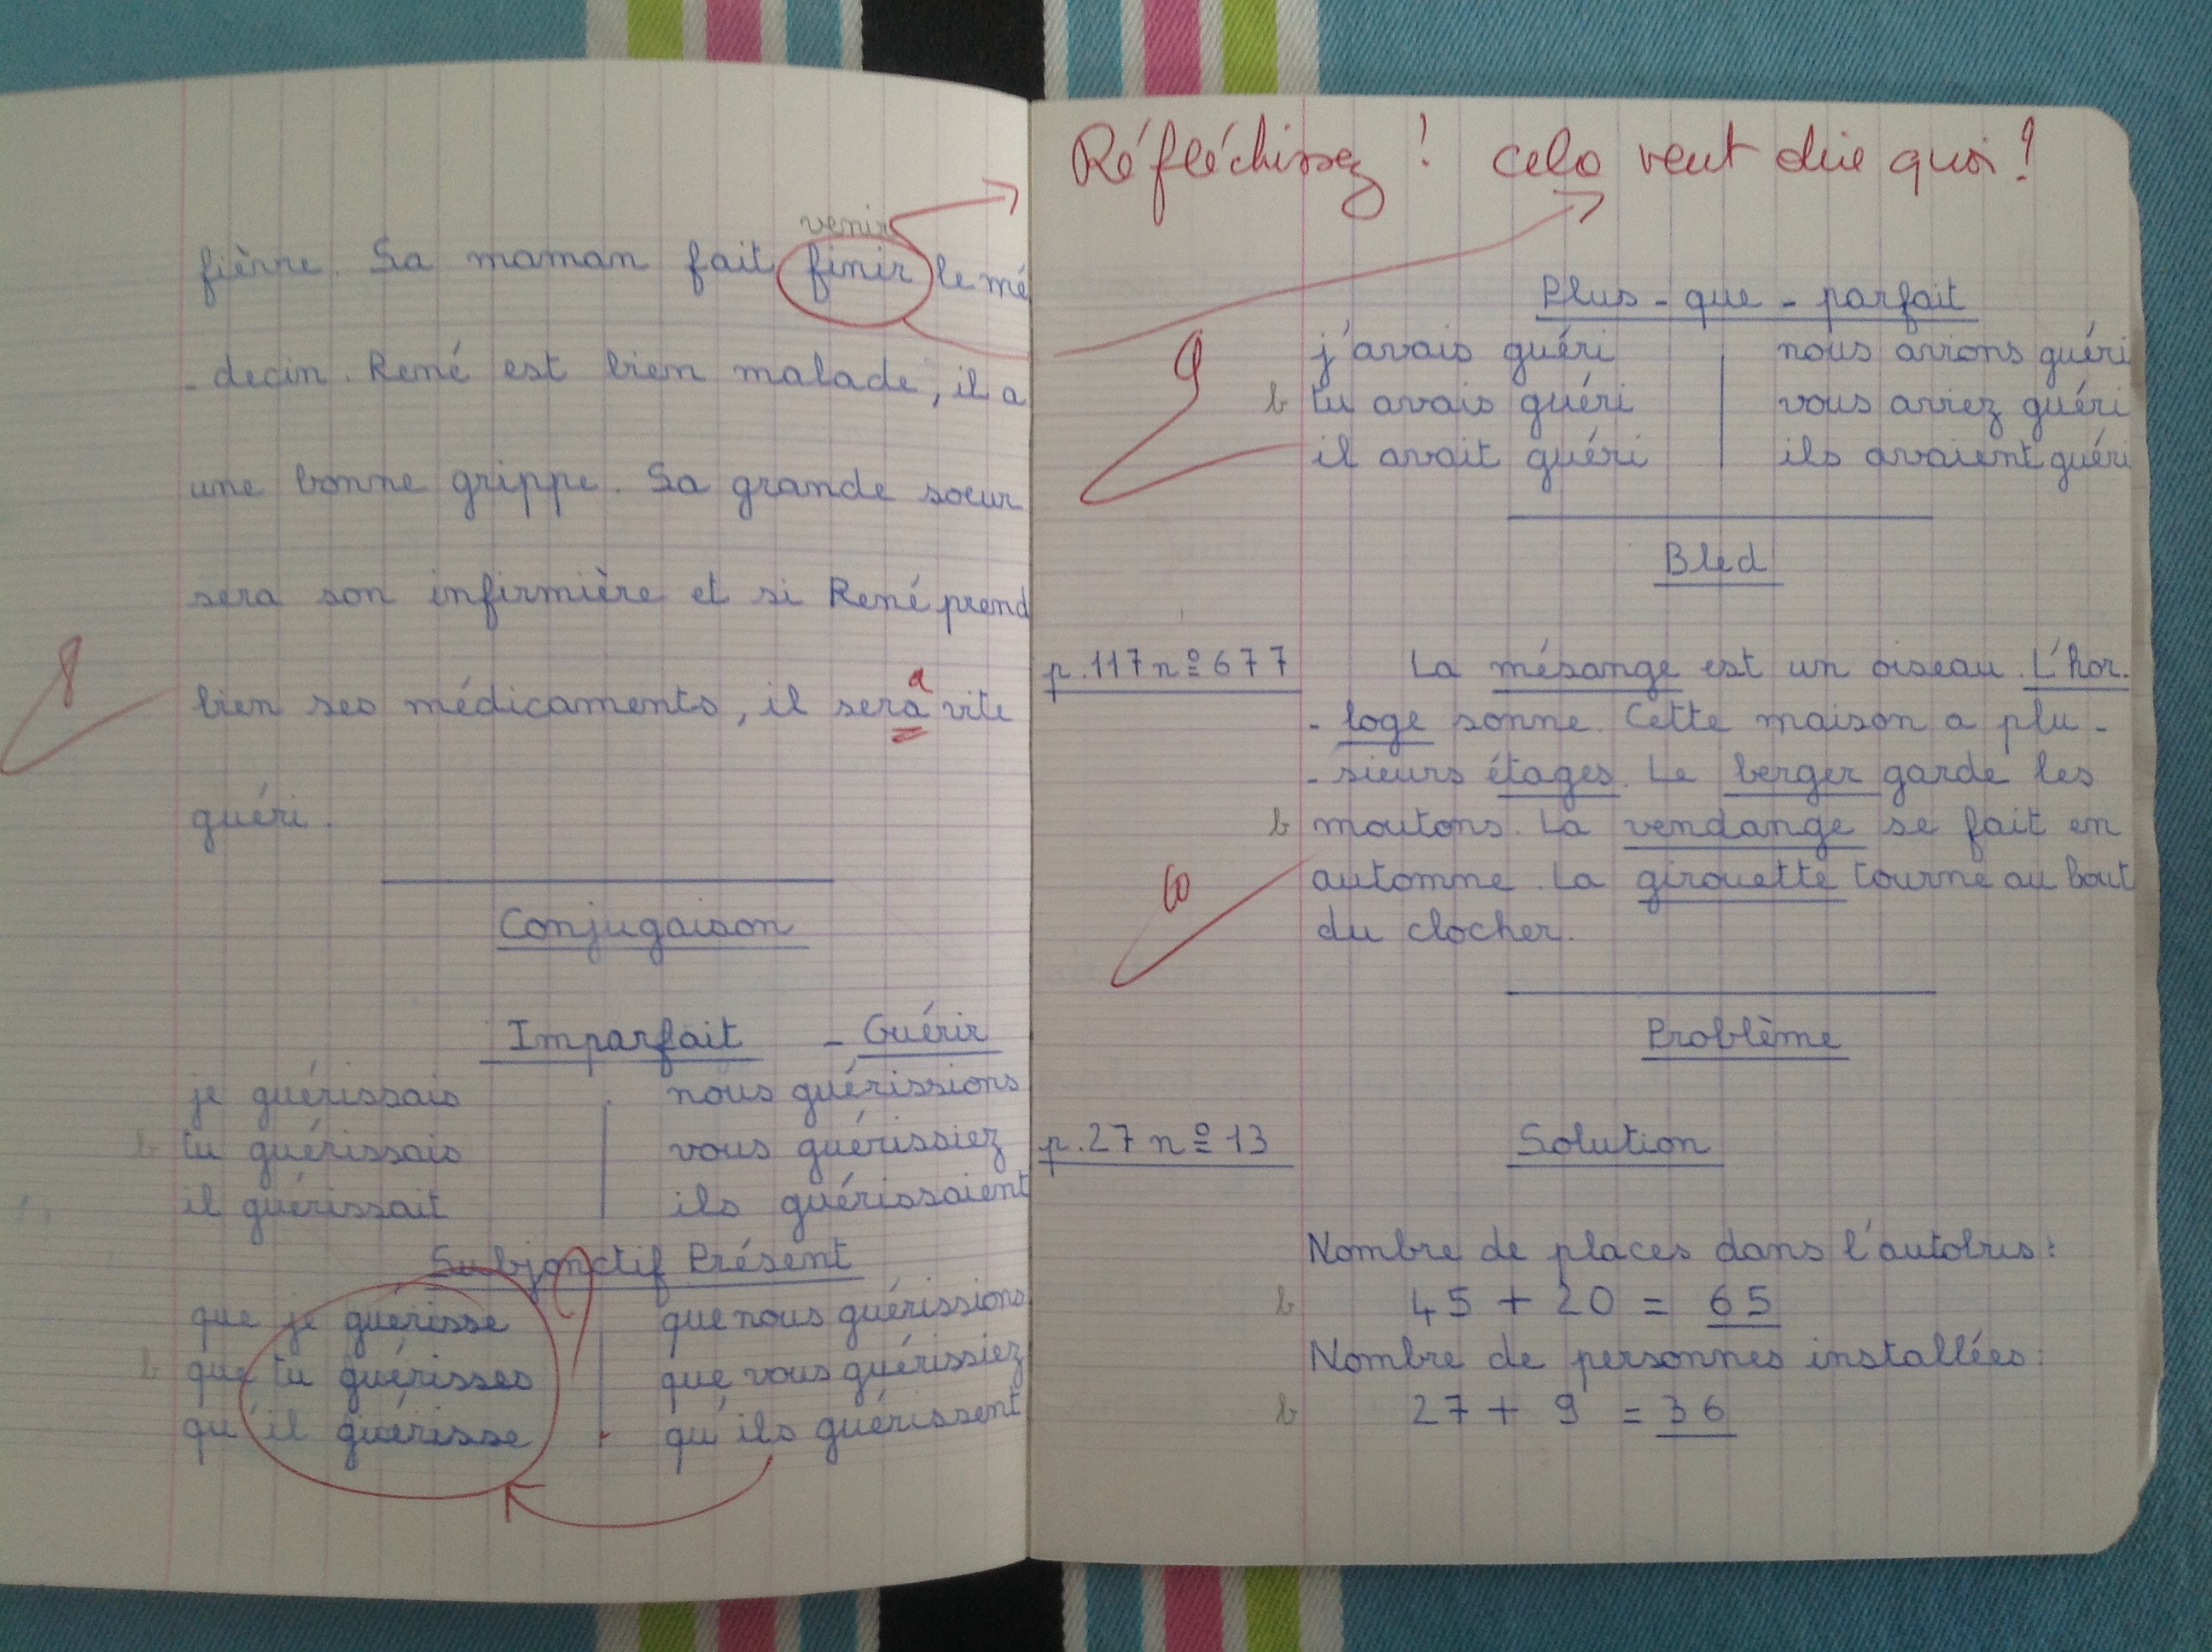 venir
fièvre. Sa maman fait finir le mé
-decin. René est bien malade, il a
une bonne grippe. Sa grande soeur
sera son infirmière et si René prend
bien ses médicaments, il sera vite
a
guéri.
8
Conjugaison
Imparfait - Guérir
je guérissais nous guérissions
b tu guérissais vous guérissiez
il guérissait ils guérissaient
Subjonctif Présent
que je guérisse que nous guérissions
b que tu guérisses que vous guérissiez
qu'il guérisse qu'ils guérissent
Réfléchissez ! Cela veut dire quoi ?
Plus-que-parfait
j'avais guéri nous avions guéri
b tu avais guéri vous aviez guéri
il avait guéri ils avaient guéri
9
Bled
p.117 nº 677
La mésange est un oiseau. L'hor.
-loge sonne. Cette maison a plu-
-sieurs étages. Le berger garde les
b moutons. La vendange se fait en
automne. La girouette tourne au bout
du clocher.
10
Problème
p.27 nº 13
Solution
Nombre de places dans l'autobus :
b 45 + 20 = 65
Nombre de personnes installées :
b 27 + 9 = 36